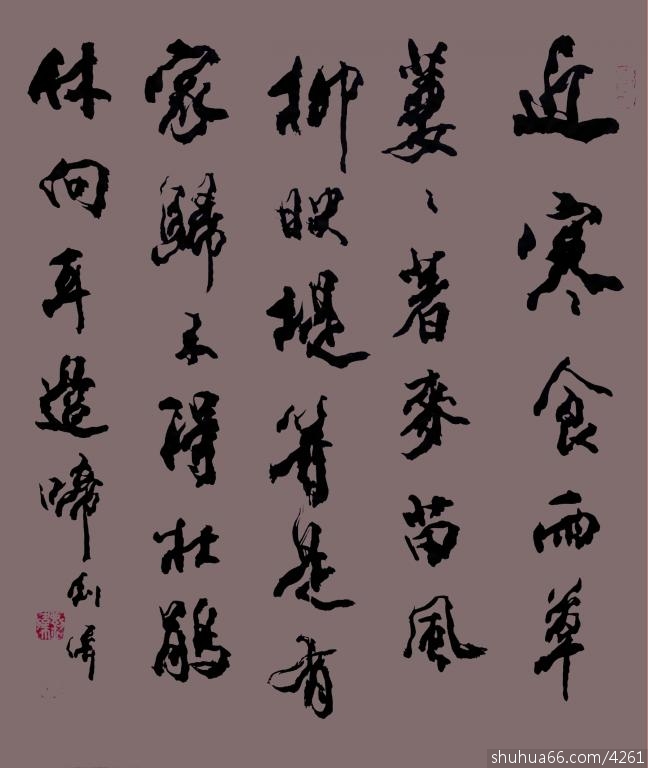 近寒食雨草
萋〻著麥苗風
柳映堤等是有
家歸未得杜鵑
休向耳邊啼
shuhua66.com/4261